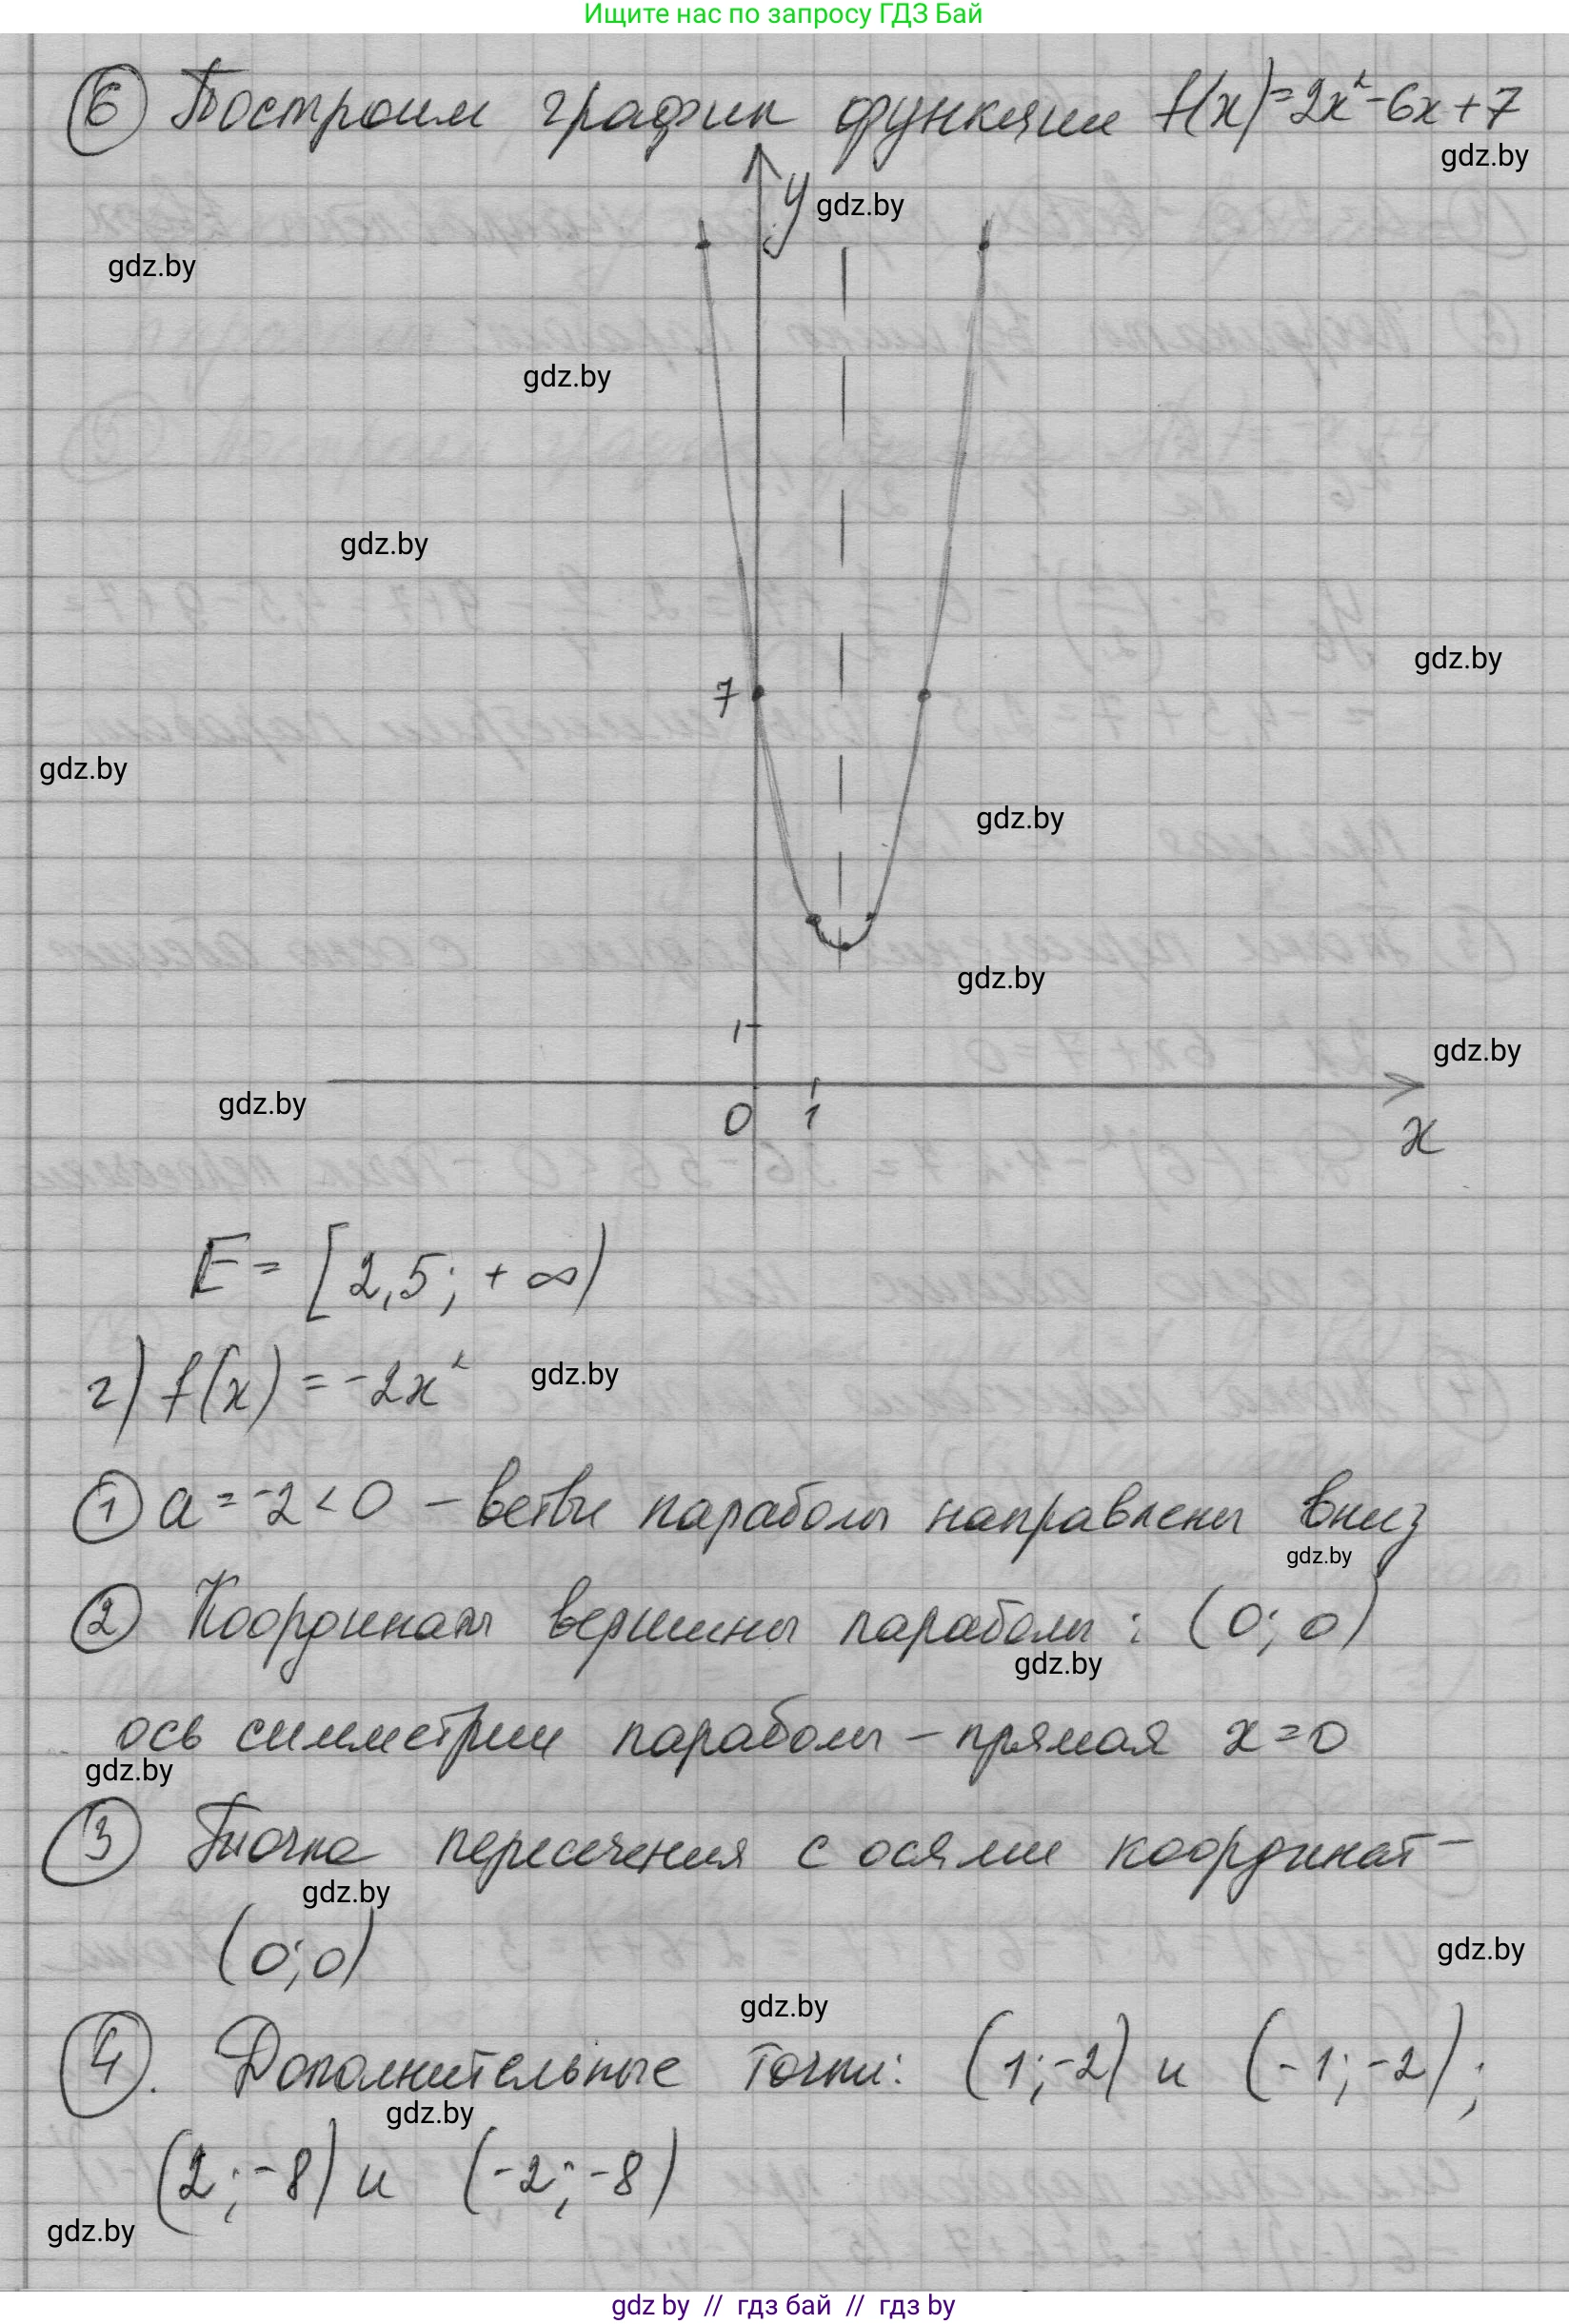 Ищите нас по запросу ГДЗ Бай
⑥ Построим график функции f(x)=2x²-6x+7
gdz.by
y gdz.by
gdz.by
gdz.by
gdz.by
gdz.by
7
gdz.by
gdz.by
gdz.by
1
gdz.by
gdz.by
0 1
x
E = [2,5; +∞)
г) f(x) = -2x² gdz.by
① a = -2 < 0 – ветви параболы направлены вниз
gdz.by
② Координаты вершины параболы: (0; 0)
gdz.by
ось симметрии параболы – прямая x=0
gdz.by
③ Точка пересечения с осями координат –
gdz.by
(0; 0)
gdz.by
gdz.by
④. Дополнительные точки: (1; -2) и (-1; -2);
gdz.by
(2; -8) и (-2; -8)
gdz.by
gdz by // гдз бай // гдз by